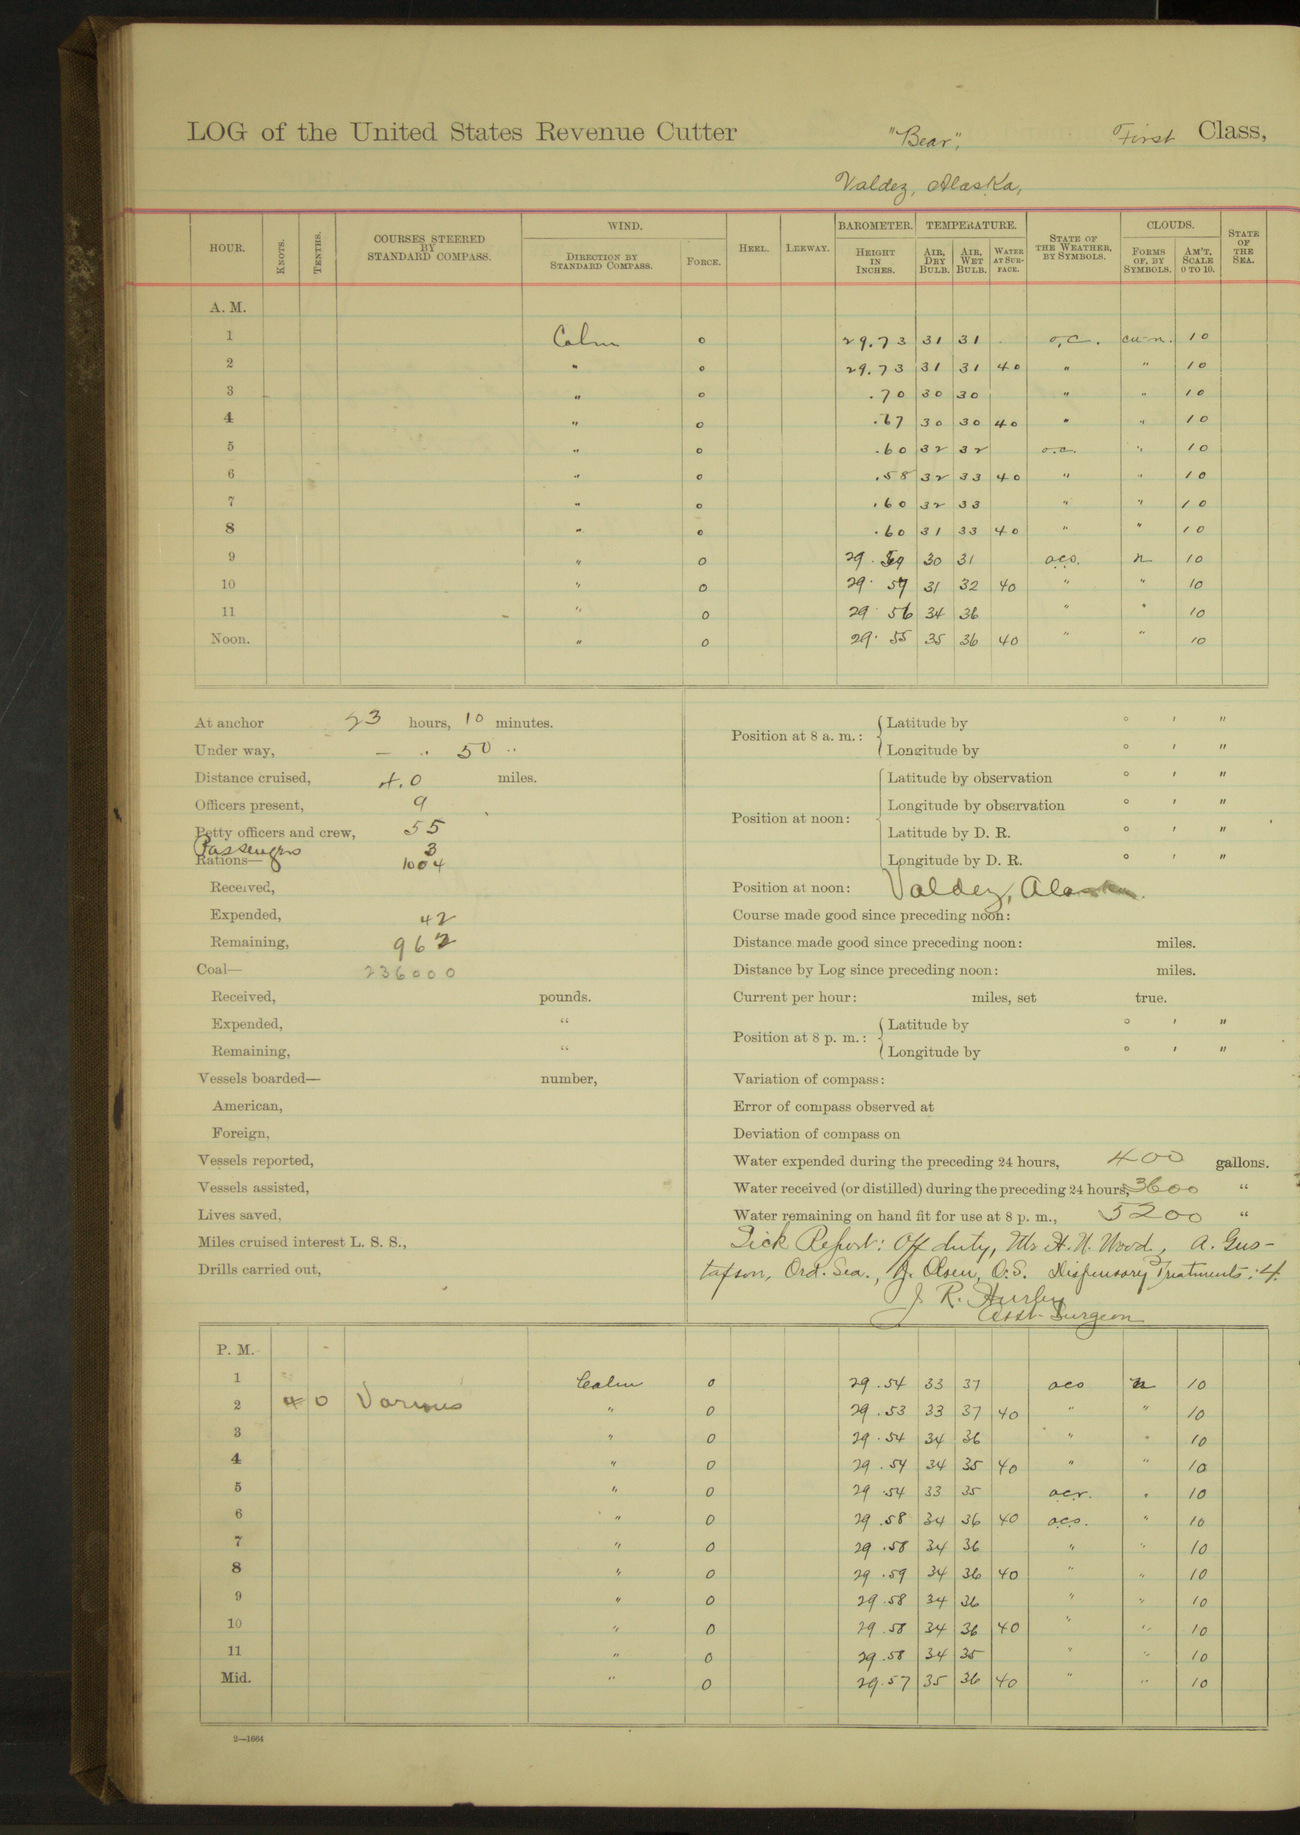 LOG of the United States Revenue Cutter "Bear", First Class,
Valdez, Alaska,
HOUR. KNOTS. TENTHS. COURSES STEERED BY STANDARD COMPASS. WIND. DIRECTION BY STANDARD COMPASS. FORCE. HEEL. LEEWAY. BAROMETER. HEIGHT IN INCHES. TEMPERATURE. AIR, DRY BULB. AIR, WET BULB. WATER AT SURFACE. STATE OF THE WEATHER, BY SYMBOLS. CLOUDS. FORMS OF, BY SYMBOLS. AM'T. SCALE 0 TO 10. STATE OF THE SEA.
A. M.
1 Calm 0 29.73 31 31 o,c. cu-n. 10
2 " 0 29.73 31 31 40 " " 10
3 " 0 .70 30 30 " " 10
4 " 0 .67 30 30 40 " " 10
5 " 0 .60 32 32 o.c. " 10
6 " 0 .58 32 33 40 " " 10
7 " 0 .60 32 33 " " 10
8 " 0 .60 31 33 40 " " 10
9 " 0 29. 59 30 31 o.c.o. n 10
10 " 0 29. 57 31 32 40 " " 10
11 " 0 29 56 34 36 " " 10
Noon. " 0 29. 55 35 36 40 " " 10
At anchor 23 hours, 10 minutes.
Under way, — " 50 "
Distance cruised, 4.0 miles.
Officers present, 9
Petty officers and crew, 55
Passengers 3
Rations— 1004
Received,
Expended, 42
Remaining, 962
Coal— 236000
Received, pounds.
Expended, "
Remaining, "
Vessels boarded— number,
American,
Foreign,
Vessels reported,
Vessels assisted,
Lives saved,
Miles cruised interest L. S. S.,
Drills carried out,
Position at 8 a. m.: Latitude by ° ' "
Longitude by ° ' "
Position at noon: Latitude by observation ° ' "
Longitude by observation ° ' "
Latitude by D. R. ° ' "
Longitude by D. R. ° ' "
Position at noon: Valdez, Alaska.
Course made good since preceding noon:
Distance made good since preceding noon: miles.
Distance by Log since preceding noon: miles.
Current per hour: miles, set true.
Position at 8 p. m.: Latitude by ° ' "
Longitude by ° ' "
Variation of compass:
Error of compass observed at
Deviation of compass on
Water expended during the preceding 24 hours, 400 gallons.
Water received (or distilled) during the preceding 24 hours, 3600 "
Water remaining on hand fit for use at 8 p. m., 5200 "
Sick Report: Off duty, Mr. H. N. Wood, A. Gus-
tafson, Ord. Sea., Olsen, O.S. Dispensary Treatments: 4.
J. R. Hurley
Asst. Surgeon
P. M.
1 Calm 0 29.54 33 37 oco n 10
2 4 0 Various " 0 29.53 33 37 40 " " 10
3 " 0 29.54 34 36 " " 10
4 " 0 29.54 34 35 40 " " 10
5 " 0 29.54 33 35 ocr. " 10
6 " 0 29.58 34 36 40 o.c.o. " 10
7 " 0 29.58 34 36 " " 10
8 " 0 29.59 34 36 40 " " 10
9 " 0 29.58 34 36 " " 10
10 " 0 29.58 34 36 40 " " 10
11 " 0 29.58 34 35 " " 10
Mid. " 0 29.57 35 36 40 " " 10
2—1664